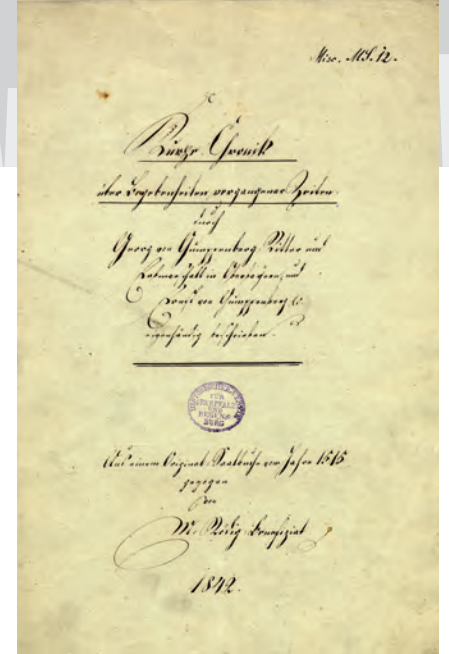 Misc. MS. 12.
Kurze Chronik
über Begebenheiten vergangener Zeiten
durch
Georg von Gumppenberg, Ritter und
in Oberbayern, und
von Gumppenberg
eigenhändig beschrieben.
HISTORISCHER VEREIN
FÜR
OBERPFALZ
UND
REGENS-
BURG
Aus einem Original-Saalbuche vom Jahre 1515
gezogen
von
M. Benefiziat
1842.